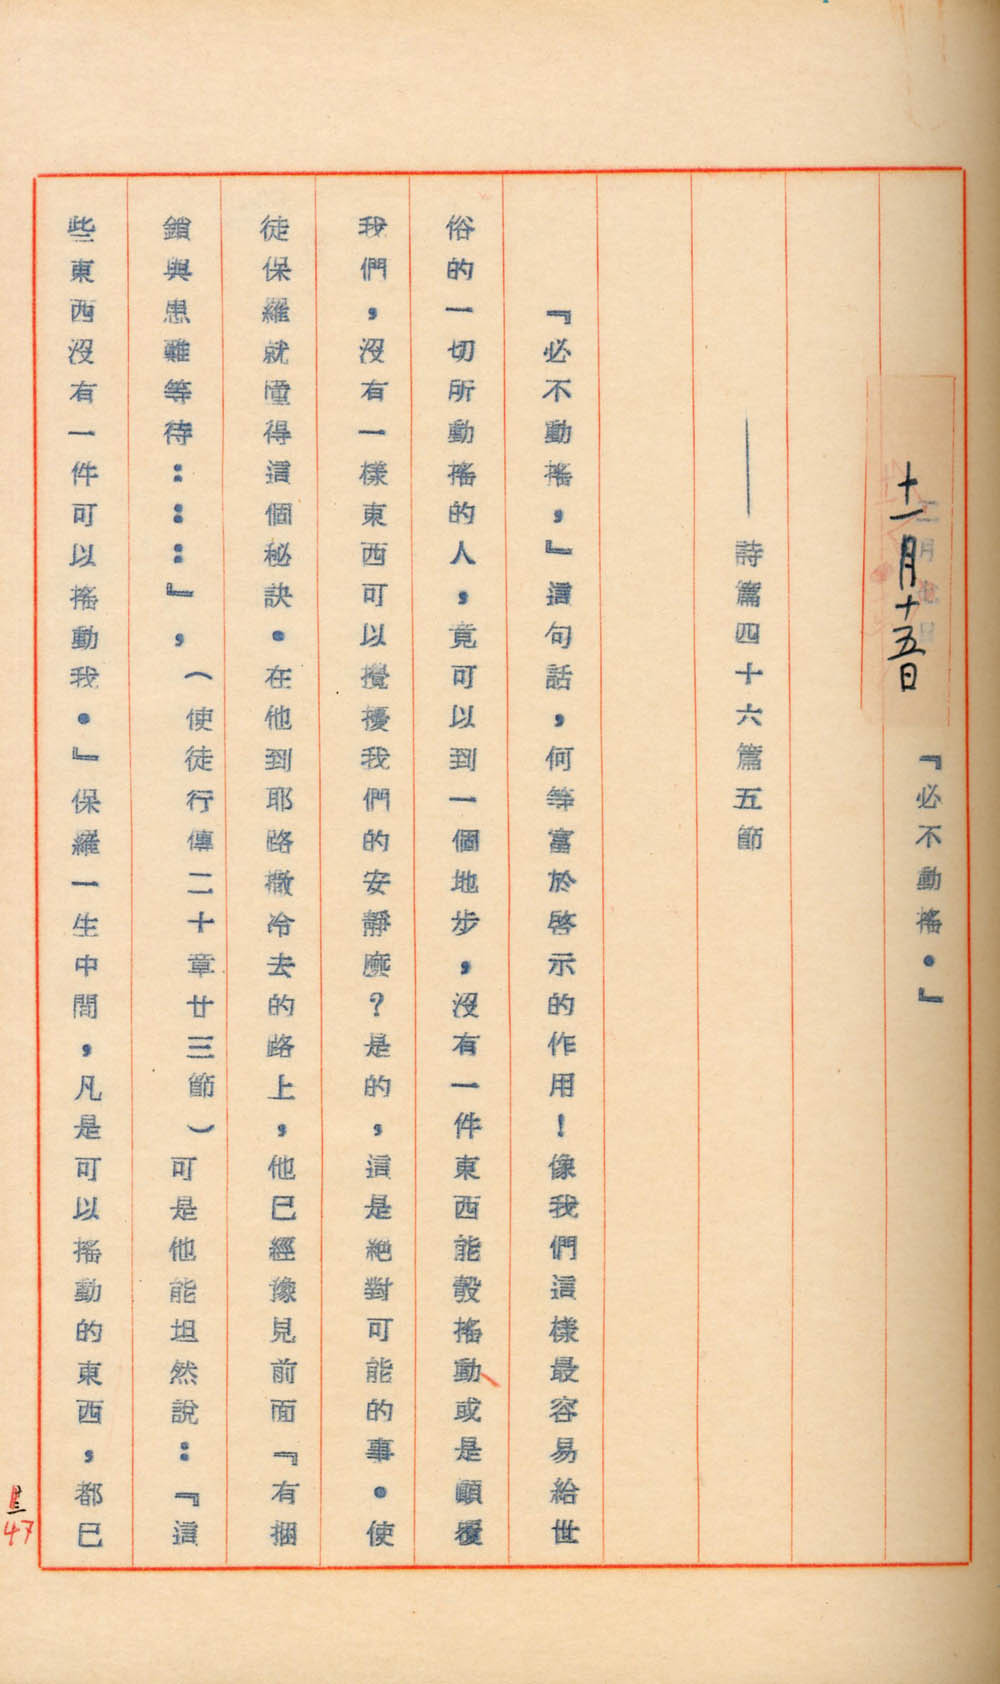 十一月十五日
『必不動搖。』
——詩篇四十六篇五節
『必不動搖,』這句話,何等富於啓示的作用!像我們這樣最容易給世
俗的一切所動搖的人,竟可以到一個地步,沒有一件東西能彀搖動或是顚覆
我們,沒有一樣東西可以攪擾我們的安靜麼?是的,這是絕對可能的事。使
徒保羅就懂得這個秘訣。在他到耶路撒冷去的路上,他已經豫見前面『有捆
鎖與患難等待:::』,(使徒行傳二十章廿三節)可是他能坦然說:『這
些東西沒有一件可以搖動我。』保羅一生中間,凡是可以搖動的東西,都已
47